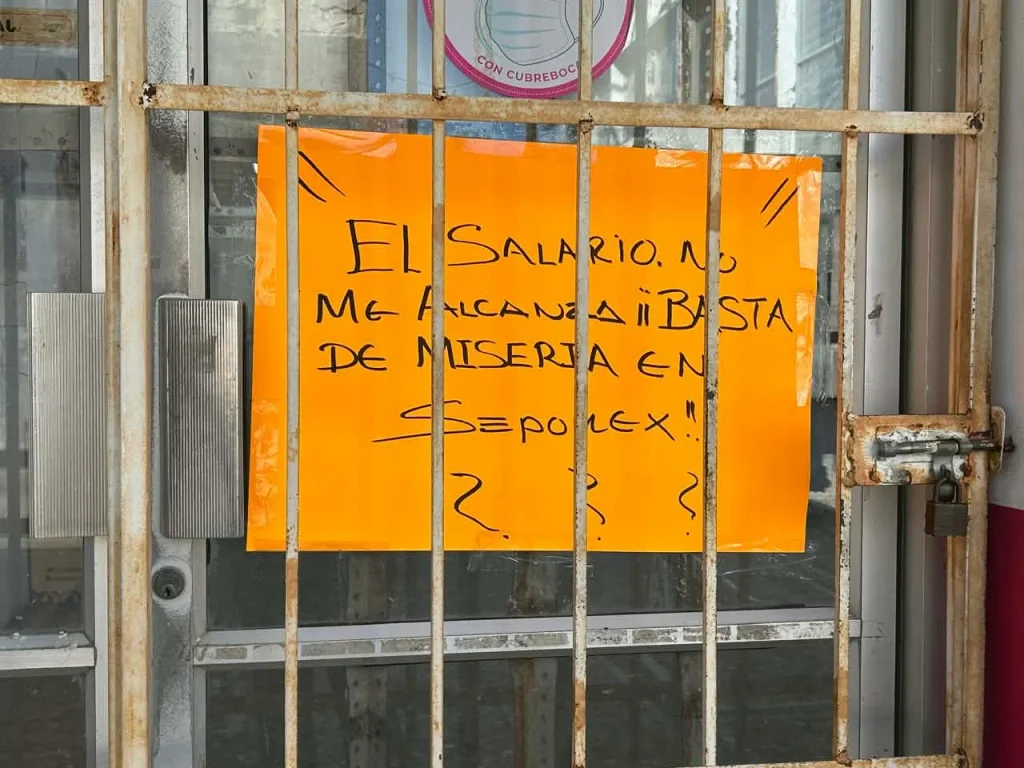 CON CUBREBOC
EL SALARIO. NO
ME ALCANZA ¡¡BASTA
DE MISERIA EN
SEPOMEX!!
? ? ?